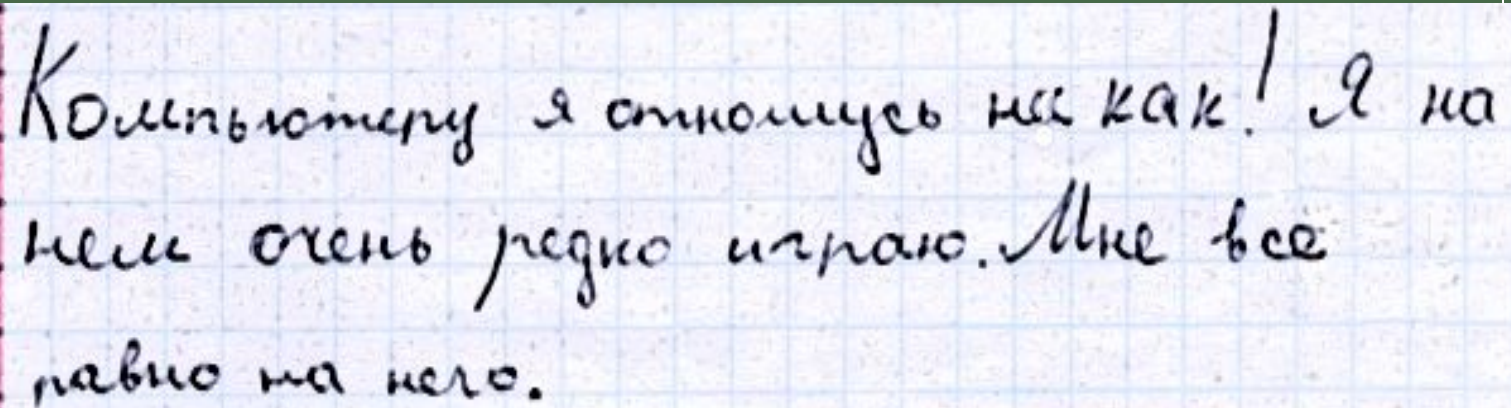 Компьютеру я отношусь ни как! Я на
нем очень редко играю. Мне все
равно на него.